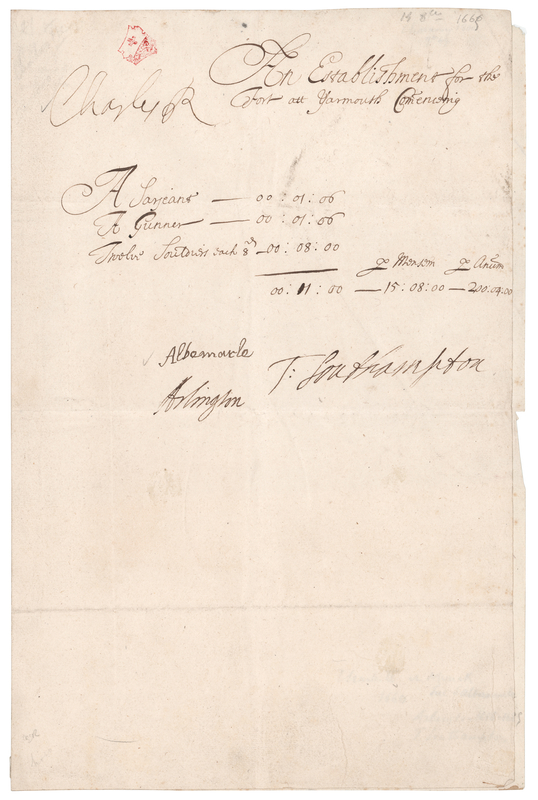 18 8ber 1665
Charles R
An Establishment for the
Fort att Yarmouth Comencing
A Sarjeant — 00 : 01 : 06
A Gunner — 00 : 01 : 06
Twelve Souldiers each 8d — 00 : 08 : 00
p Mensem p Anum
00 : 11 : 00 — 15 : 08 : 00 — 200:04:00
Albemarle
T: Southampton
Arlington